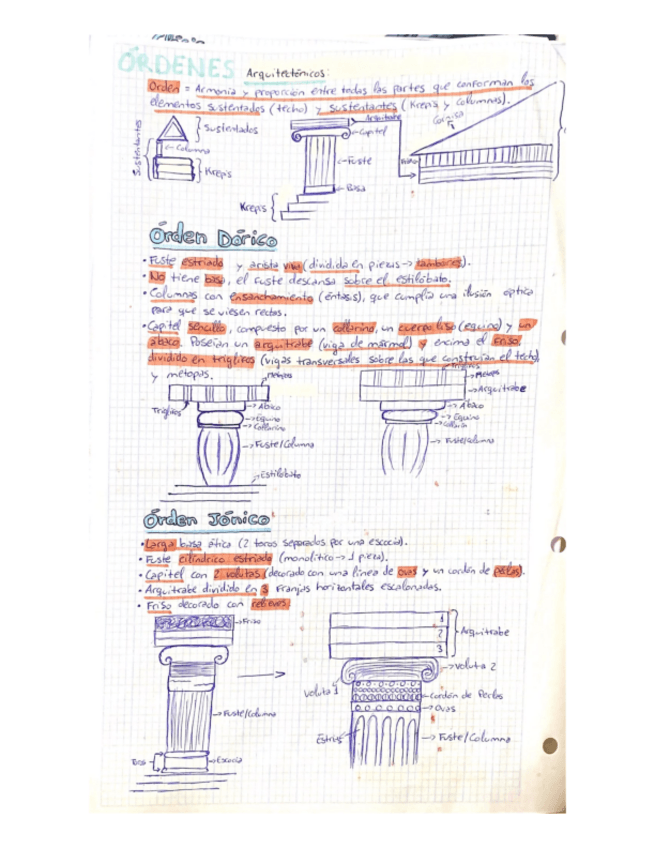 ÓRDENES Arquitectónicos:
Orden = Armonía y proporción entre todas las partes que conforman los
elementos sustentados (techo) y sustentantes (Krepis y columnas).
Sustentantes
Sustentados
Columna
Krepis
Arquitrabe
Capitel
Fuste
Basa
Krepis
Cornisa
Órden Dórico
• Fuste estriado y arista viva (dividida en piezas → tambores).
• No tiene basa, el fuste descansa sobre el estilóbato.
• Columnas con ensanchamiento (éntasis), que cumplía una ilusión óptica
para que se viesen rectas.
• Capitel sencillo, compuesto por un collarino, un cuerpo liso (equino) y un
ábaco. Poseían un arquitrabe (viga de mármol) y encima el friso
dividido en triglifos (vigas transversales sobre las que construían el techo)
y métopas.
Metopas
Triglifos
→ Ábaco
→ Equino
→ Collarino
→ Fuste/Columna
Estilóbato
Triglifos
→ Metopas
→ Arquitrabe
→ Ábaco
→ Equino
→ Collarin
→ Fuste/columna
Órden Jónico
• Larga basa ática (2 toros separados por una escocia).
• Fuste cilíndrico estriado (monolítico → 1 pieza).
• Capitel con 2 volutas (decorado con una línea de ovas y un cordón de perlas).
• Arquitrabe dividido en 3 Franjas horizontales escalonadas.
• Friso decorado con relieves.
→ Friso
→ Fuste/Columna
Bas
→ Escocia
1
2
3
Arquitrabe
→ Voluta 2
Voluta 1
→ Cordón de Perlas
→ Ovas
Estrías
→ Fuste/Columna